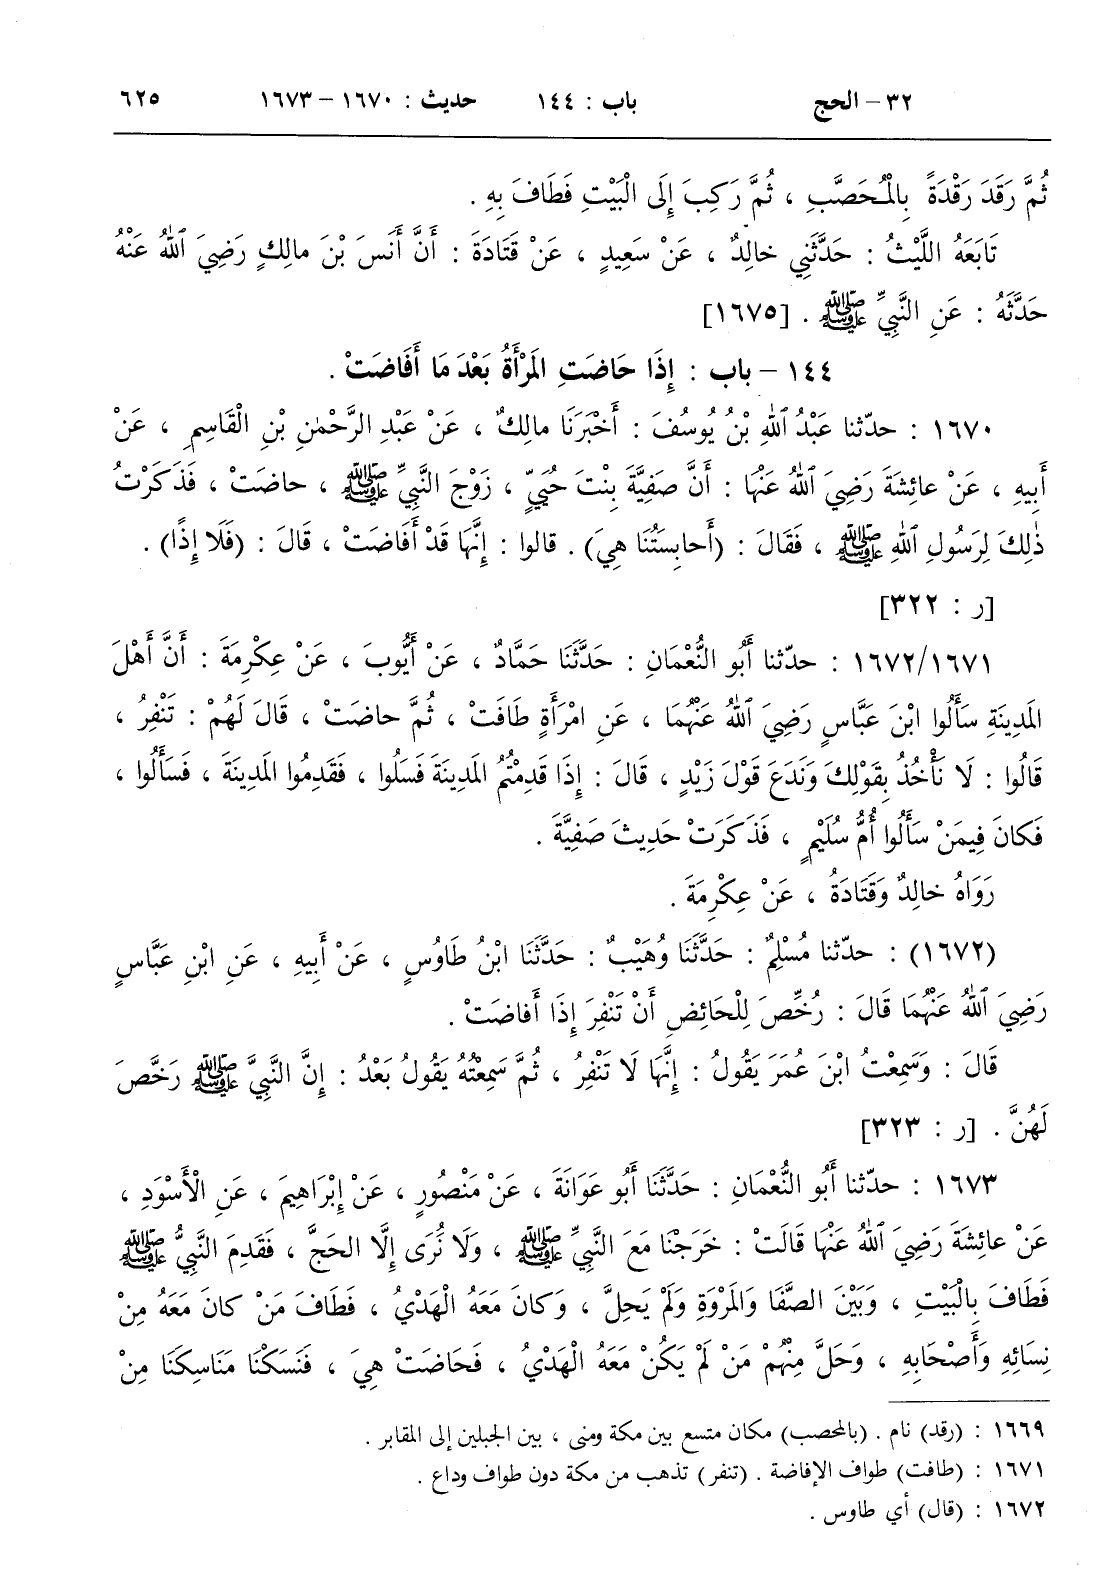 ٣٢ – الحج باب : ١٤٤ حديث : ١٦٧٠ – ١٦٧٣ ٦٢٥
ثُمَّ رَقَدَ رَقْدَةً بِالْمُحَصَّبِ ، ثُمَّ رَكِبَ إِلَى الْبَيْتِ فَطَافَ بِهِ .
تَابَعَهُ اللَّيْثُ : حَدَّثَنِي خالِدٌ ، عَنْ سَعِيدٍ ، عَنْ قَتَادَةَ : أَنَّ أَنَسَ بْنَ مالِكٍ رَضِيَ ٱللهُ عَنْهُ
حَدَّثَهُ : عَنِ النَّبِيِّ ﷺ . [١٦٧٥]
١٤٤ – باب : إِذَا حَاضَتِ المَرْأَةُ بَعْدَ مَا أَفَاضَتْ .
١٦٧٠ : حدّثنا عَبْدُ ٱللهِ بْنُ يُوسُفَ : أَخْبَرَنَا مالِكٌ ، عَنْ عَبْدِ الرَّحْمٰنِ بْنِ الْقَاسِمِ ، عَنْ
أَبِيهِ ، عَنْ عائِشَةَ رَضِيَ ٱللهُ عَنْهَا : أَنَّ صَفِيَّةَ بِنْتَ حُيَيٍّ ، زَوْجَ النَّبِيِّ ﷺ ، حاضَتْ ، فَذَكَرْتُ
ذٰلِكَ لِرَسُولِ ٱللهِ ﷺ ، فَقَالَ : (أَحابِسَتُنَا هِيَ) . قالوا : إِنَّهَا قَدْ أَفَاضَتْ ، قَالَ : (فَلَا إِذًا) .
[ر : ٣٢٢]
١٦٧٢/١٦٧١ : حدّثنا أَبُو النُّعْمَانِ : حَدَّثَنَا حَمَّادٌ ، عَنْ أَيُّوبَ ، عَنْ عِكْرِمَةَ : أَنَّ أَهْلَ
المَدِينَةِ سَأَلُوا ابْنَ عَبَّاسٍ رَضِيَ ٱللهُ عَنْهُمَا ، عَنِ امْرَأَةٍ طَافَتْ ، ثُمَّ حاضَتْ ، قَالَ لَهُمْ : تَنْفِرُ ،
قَالُوا : لَا نَأْخُذُ بِقَوْلِكَ وَنَدَعَ قَوْلَ زَيْدٍ ، قَالَ : إِذَا قَدِمْتُمُ المَدِينَةَ فَسَلُوا ، فَقَدِمُوا المَدِينَةَ ، فَسَأَلُوا ،
فَكانَ فِيمَنْ سَأَلُوا أُمُّ سُلَيْمٍ ، فَذَكَرَتْ حَدِيثَ صَفِيَّةَ .
رَوَاهُ خالِدٌ وَقَتَادَةُ ، عَنْ عِكْرِمَةَ .
(١٦٧٢) : حدّثنا مُسْلِمٌ : حَدَّثَنَا وُهَيْبٌ : حَدَّثَنَا ابْنُ طَاوُسٍ ، عَنْ أَبِيهِ ، عَنِ ابْنِ عَبَّاسٍ
رَضِيَ ٱللهُ عَنْهُمَا قَالَ : رُخِّصَ لِلْحَائِضِ أَنْ تَنْفِرَ إِذَا أَفاضَتْ .
قَالَ : وَسَمِعْتُ ابْنَ عُمَرَ يَقُولُ : إِنَّهَا لَا تَنْفِرُ ، ثُمَّ سَمِعْتُهُ يَقُولُ بَعْدُ : إِنَّ النَّبِيَّ ﷺ رَخَّصَ
لَهُنَّ . [ر : ٣٢٣]
١٦٧٣ : حدّثنا أَبُو النُّعْمَانِ : حَدَّثَنَا أَبُو عَوَانَةَ ، عَنْ مَنْصُورٍ ، عَنْ إِبْرَاهِيمَ ، عَنِ الْأَسْوَدِ ،
عَنْ عائِشَةَ رَضِيَ ٱللهُ عَنْهَا قَالَتْ : خَرَجْنَا مَعَ النَّبِيِّ ﷺ ، وَلَا نُرَى إِلَّا الحَجَّ ، فَقَدِمَ النَّبِيُّ ﷺ
فَطَافَ بِالْبَيْتِ ، وَبَيْنَ الصَّفَا وَالمَرْوَةِ وَلَمْ يَحِلَّ ، وَكانَ مَعَهُ الْهَدْيُ ، فَطَافَ مَنْ كانَ مَعَهُ مِنْ
نِسَائِهِ وَأَصْحَابِهِ ، وَحَلَّ مِنْهُمْ مَنْ لَمْ يَكُنْ مَعَهُ الْهَدْيُ ، فَحَاضَتْ هِيَ ، فَنَسَكْنَا مَنَاسِكَنَا مِنْ
١٦٦٩ : (رقد) نام . (بالمحصب) مكان متسع بين مكة ومنى ، بين الجبلين إلى المقابر .
١٦٧١ : (طافت) طواف الإفاضة . (تنفر) تذهب من مكة دون طواف وداع .
١٦٧٢ : (قال) أي طاوس .